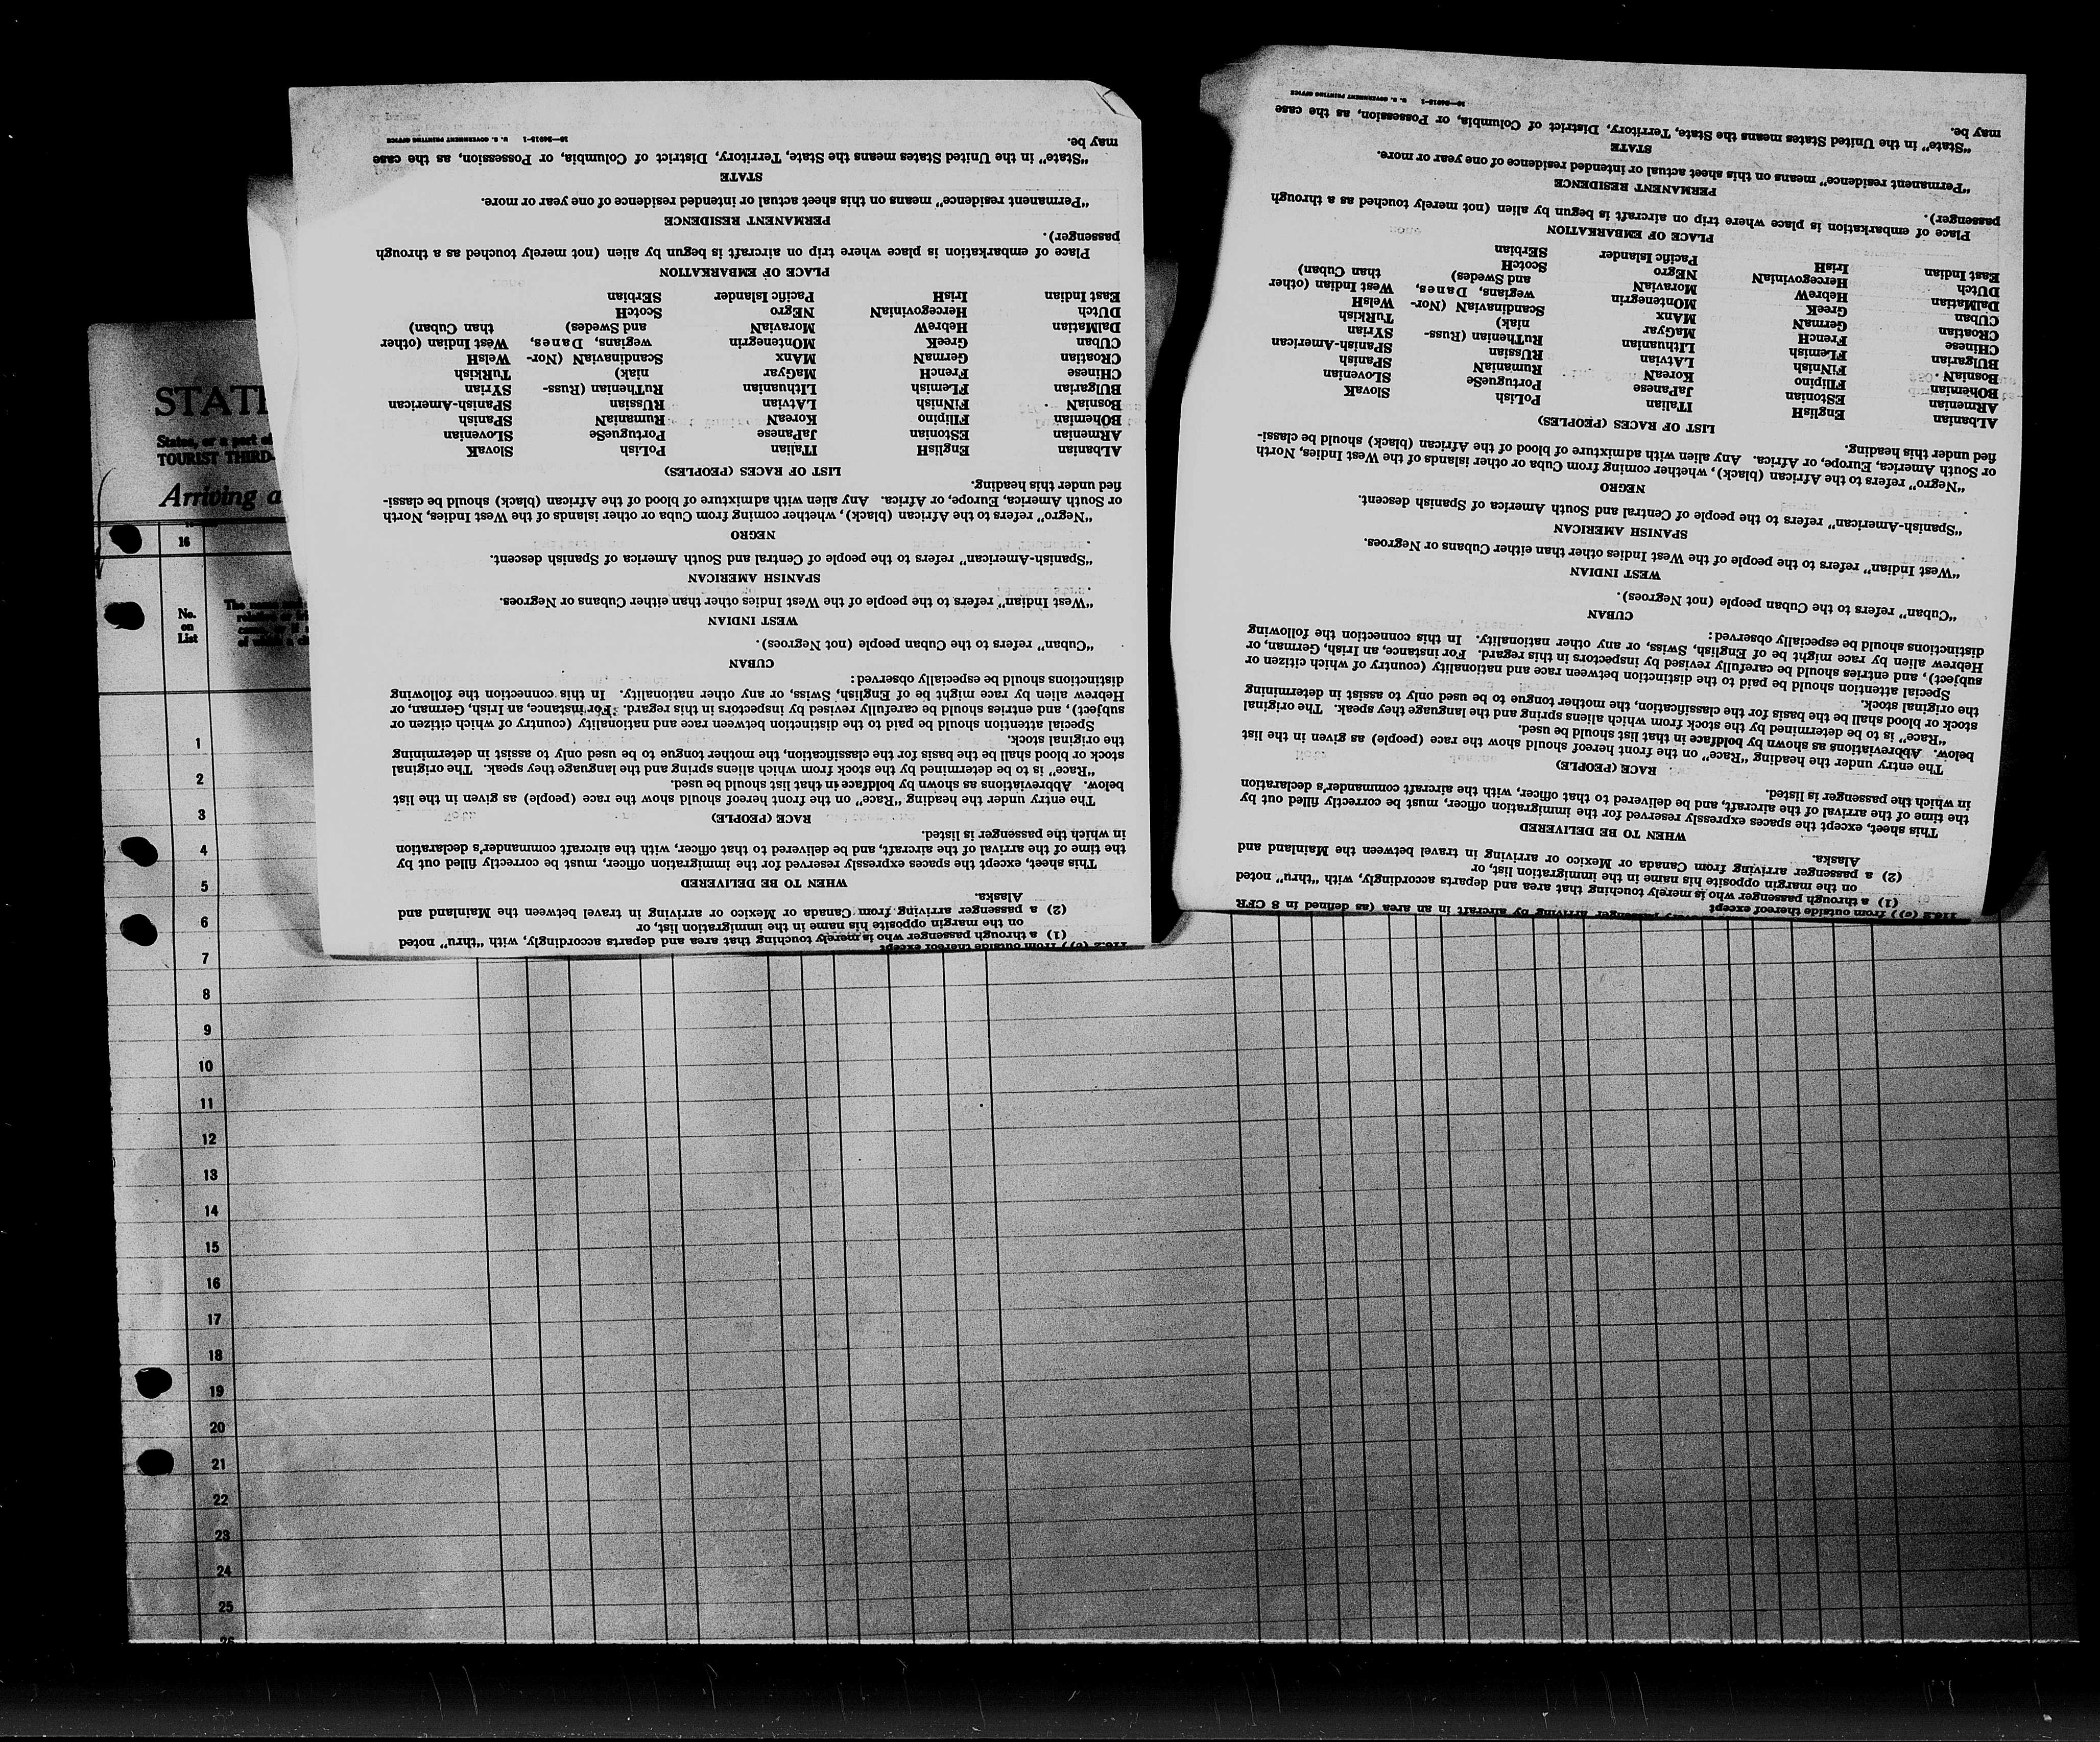 STATE
States, or a part of
TOURIST THIRD-
Arriving a
16
No.
on
List
1
2
3
4
5
6
7
8
9
10
11
12
13
14
15
16
17
18
19
20
21
22
23
24
25
26
118.2 (c)) from outside thereof except
(1) a through passenger who is merely touching that area and departs accordingly, with "thru" noted
on the margin opposite his name in the immigration list, or
(2) a passenger arriving from Canada or Mexico or arriving in travel between the Mainland and
Alaska.
WHEN TO BE DELIVERED
This sheet, except the spaces expressly reserved for the immigration officer, must be correctly filled out by
the time of the arrival of the aircraft, and be delivered to that officer, with the aircraft commander's declaration
in which the passenger is listed.
RACE (PEOPLE)
The entry under the heading "Race" on the front hereof should show the race (people) as given in the list
below. Abbreviations as shown by boldface in that list should be used.
"Race" is to be determined by the stock from which aliens spring and the language they speak. The original
stock or blood shall be the basis for the classification, the mother tongue to be used only to assist in determining
the original stock.
Special attention should be paid to the distinction between race and nationality (country of which citizen or
subject), and entries should be carefully revised by inspectors in this regard. For instance, an Irish, German, or
Hebrew alien by race might be of English, Swiss, or any other nationality. In this connection the following
distinctions should be especially observed:
CUBAN
"Cuban" refers to the Cuban people (not Negroes).
WEST INDIAN
"West Indian" refers to the people of the West Indies other than either Cubans or Negroes.
SPANISH AMERICAN
"Spanish-American" refers to the people of Central and South America of Spanish descent.
NEGRO
"Negro" refers to the African (black), whether coming from Cuba or other islands of the West Indies, North
or South America, Europe, or Africa. Any alien with admixture of blood of the African (black) should be classi-
fied under this heading.
LIST OF RACES (PEOPLES)
ALbanian EnglisH ITalian PoLish SlovaK
ARmenian EStonian JaPanese PortugueSe SLOvenian
BOhemian FIlipino KoreaN RumaniaN SPanish
BosniaN FiNnish LAtvian RUssian SPanish-American
BUlgarian FLemish LIthuanian RuThenian (Russ- SYrian
CHinese FrencH MaGyar niak) TuRkish
CRoatian GermaN MAnx ScandinaviaN (Nor- WelsH
CUban GreeK MOntenegrin wegians, Danes, West Indian (other
DalMatian HebreW MoraviaN and Swedes) than Cuban)
DUtch HercegoviniaN NEgro ScotcH
East Indian IrisH Pacific Islander SErbian
PLACE OF EMBARKATION
Place of embarkation is place where trip on aircraft is begun by alien (not merely touched as a through
passenger).
PERMANENT RESIDENCE
"Permanent residence" means on this sheet actual or intended residence of one year or more.
STATE
"State" in the United States means the State, Territory, District of Columbia, or Possession, as the case
may be.
U. S. GOVERNMENT PRINTING OFFICE
118.2 (c)) from outside thereof except
(1) a through passenger who is merely touching that area and departs accordingly, with "thru" noted
on the margin opposite his name in the immigration list, or
(2) a passenger arriving from Canada or Mexico or arriving in travel between the Mainland and
Alaska.
WHEN TO BE DELIVERED
This sheet, except the spaces expressly reserved for the immigration officer, must be correctly filled out by
the time of the arrival of the aircraft, and be delivered to that officer, with the aircraft commander's declaration
in which the passenger is listed.
RACE (PEOPLE)
The entry under the heading "Race" on the front hereof should show the race (people) as given in the list
below. Abbreviations as shown by boldface in that list should be used.
"Race" is to be determined by the stock from which aliens spring and the language they speak. The original
stock or blood shall be the basis for the classification, the mother tongue to be used only to assist in determining
the original stock.
Special attention should be paid to the distinction between race and nationality (country of which citizen or
subject), and entries should be carefully revised by inspectors in this regard. For instance, an Irish, German, or
Hebrew alien by race might be of English, Swiss, or any other nationality. In this connection the following
distinctions should be especially observed:
CUBAN
"Cuban" refers to the Cuban people (not Negroes).
WEST INDIAN
"West Indian" refers to the people of the West Indies other than either Cubans or Negroes.
SPANISH AMERICAN
"Spanish-American" refers to the people of Central and South America of Spanish descent.
NEGRO
"Negro" refers to the African (black), whether coming from Cuba or other islands of the West Indies, North
or South America, Europe, or Africa. Any alien with admixture of blood of the African (black) should be classi-
fied under this heading.
LIST OF RACES (PEOPLES)
ALbanian EnglisH ITalian PoLish SlovaK
ARmenian EStonian JaPanese PortugueSe SLOvenian
BOhemian FIlipino KoreaN RumaniaN SPanish
BosniaN FiNnish LAtvian RUssian SPanish-American
BUlgarian FLemish LIthuanian RuThenian (Russ- SYrian
CHinese FrencH MaGyar niak) TuRkish
CRoatian GermaN MAnx ScandinaviaN (Nor- WelsH
CUban GreeK MOntenegrin wegians, Danes, West Indian (other
DalMatian HebreW MoraviaN and Swedes) than Cuban)
DUtch HercegoviniaN NEgro ScotcH
East Indian IrisH Pacific Islander SErbian
PLACE OF EMBARKATION
Place of embarkation is place where trip on aircraft is begun by alien (not merely touched as a through
passenger).
PERMANENT RESIDENCE
"Permanent residence" means on this sheet actual or intended residence of one year or more.
STATE
"State" in the United States means the State, Territory, District of Columbia, or Possession, as the case
may be.
U. S. GOVERNMENT PRINTING OFFICE